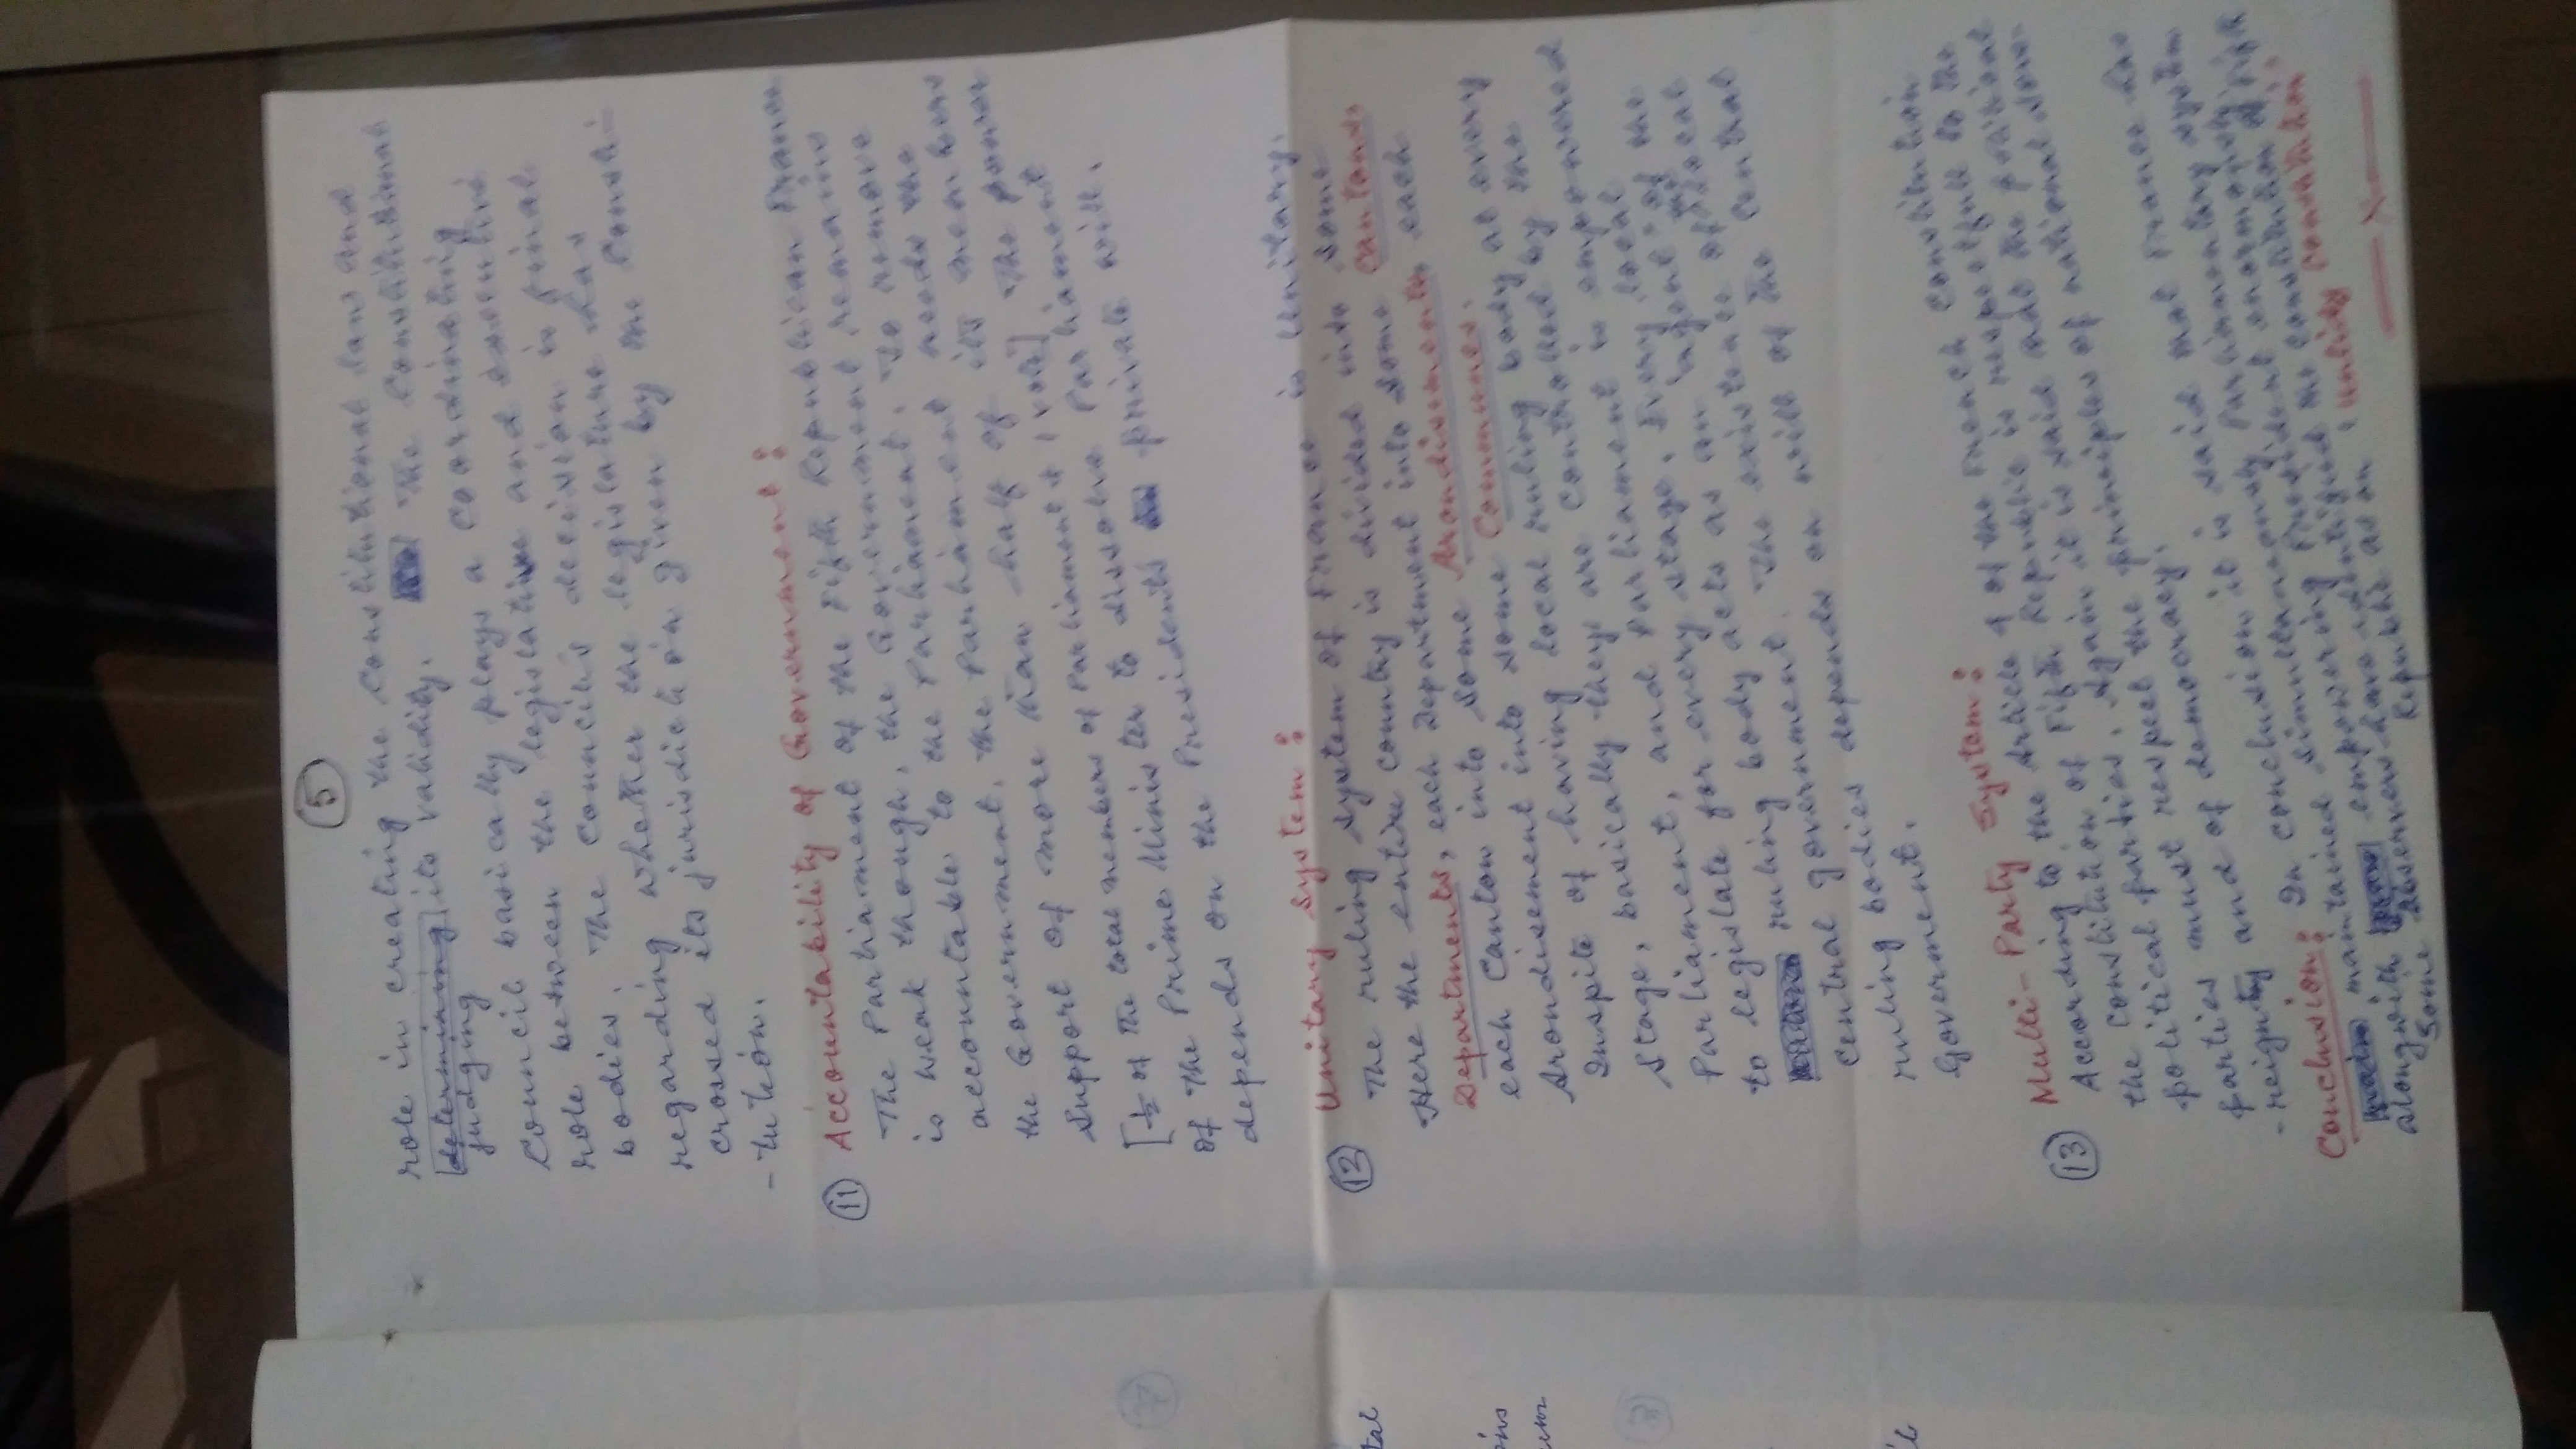 5
role in creating the constitutional laws and
determining its validity. The Constitutional
judging
Council basically plays a coordinating
role between the legislative and executive
bodies. The Council's decision is final
regarding whether the legislature has
crossed its jurisdiction given by the Consti-
-tution.
11 Accountability of Government :
The Parliament of the Fifth Republican France
is weak though, the Government remains
accountable to the Parliament. To remove
the Government, the Parliament needs the
support of more than half of its members
[½ of the total members of Parliament + 1 vote]. The power
of the Prime Minister to dissolve Parliament
depends on the Presidents private will.
12 Unitary System :
The ruling system of France is Unitary.
Here the entire country is divided into some
Departments, each Department into some Cantons,
each Canton into some Arondisements, each
Arondisement into some Communes.
Inspite of having local ruling body at every
stage, basically they are controlled by the
Parliament, and Parliament is empowered
to legislate for every stage. Every local
ruling body acts as an "agent" of the
Central government. The existence of local
ruling bodies depends on will of the Central
Government.
13 Multi-Party System :
According to the Article 4 of the French Constitution
the Constitution of Fifth Republic is respectfull to the
political parties. Again it is said that the political
parties must respect the principles of national sov-
-reignty and of democracy.
Conclusion : In conclusion it is said that France has
maintained simultaneously Parliamentary system
alongwith empowering President enormously.
Some observers have identified the constitution of Fifth
Republic as an "unlisty constitution".
X